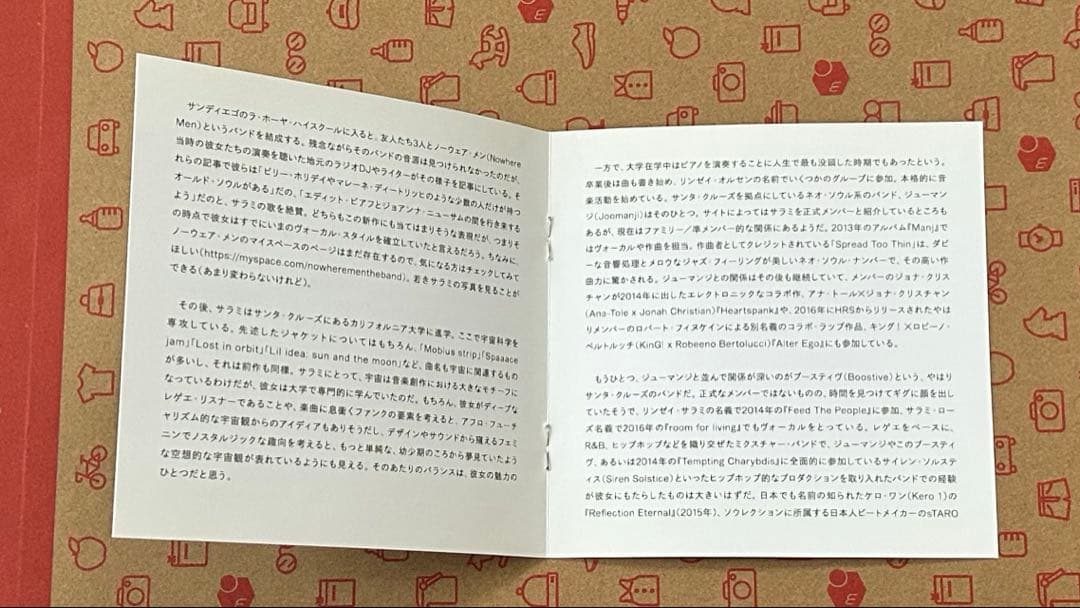 サンディエゴのラ・ホーヤ・ハイスクールに入ると、友人たち3人とノーウェア・メン(Nowhere
Men)というバンドを結成する。残念ながらそのバンドの音源は見つけられなかったのだが、
当時の彼女たちの演奏を聴いた地元のラジオDJやライターがその様子を記事にしている。そ
れらの記事で彼らは「ビリー・ホリデイやマレーネ・ディートリッヒのような少数の人だけが持つ
オールド・ソウルがある」だの、「エディット・ピアフとジョアンナ・ニューサムの間を行き来する
よう」だのと、サラミの歌を絶賛。どちらもこの新作にも当てはまりそうな表現だが、つまりそ
の時点で彼女はすでにいまのヴォーカル・スタイルを確立していたと言えるだろう。ちなみに
ノーウェア・メンのマイスペースのページはまだ存在するので、気になる方はチェックしてみて
ほしい(https://myspace.com/nowherementheband)。若きサラミの写真を見ることが
できる(あまり変わらないけれど)。
その後、サラミはサンタ・クルーズにあるカリフォルニア大学に進学。ここで宇宙科学を
専攻している。先述したジャケットについてはもちろん、「Mobius strip」「Spaaace
jam」「Lost in orbit」「Lil idea: sun and the moon」など、曲名も宇宙に関連するもの
が多いし、それは前作も同様。サラミにとって、宇宙は音楽創作における大きなモチーフに
なっているわけだが、彼女は大学で専門的に学んでいたのだ。もちろん、彼女がディープな
レゲエ・リスナーであることや、楽曲に息衝くファンクの要素を考えると、アフロ・フューチ
ャリズム的な宇宙観からのアイディアもありそうだし、デザインやサウンドから窺えるフェミ
ニンでノスタルジックな趣向を考えると、もっと単純な、幼少期のころから夢見ていたよう
な空想的な宇宙観が表れているようにも見える。そのあたりのバランスは、彼女の魅力の
ひとつだと思う。
一方で、大学在学中はピアノを演奏することに人生で最も没頭した時期でもあったという。
卒業後は曲も書き始め、リンゼイ・オルセンの名前でいくつかのグループに参加。本格的に音
楽活動を始めている。サンタ・クルーズを拠点にしているネオ・ソウル系のバンド、ジューマン
ジ(Joomanji)はそのひとつ。サイトによってはサラミを正式メンバーと紹介しているところも
あるが、現在はファミリー／準メンバー的な関係にあるようだ。2013年のアルバム『Manj』で
はヴォーカルや作曲を担当。作曲者としてクレジットされている「Spread Too Thin」は、ダビ
ーな音響処理とメロウなジャズ・フィーリングが美しいネオ・ソウル・ナンバーで、その高い作
曲力に驚かされる。ジューマンジとの関係はその後も継続していて、メンバーのジョナ・クリス
チャンが2014年に出したエレクトロニックなコラボ作、アナ・トール×ジョナ・クリスチャン
(Ana-Tole x Jonah Christian)『Heartspank』や、2016年にHRSからリリースされたやは
りメンバーのロバート・フィヌケインによる別名義のコラボ・ラップ作品、キング！×ロビーノ・
ベルトルッチ(KinG! x Robeeno Bertolucci)『Alter Ego』にも参加している。
もうひとつ、ジューマンジと並んで関係が深いのがブースティヴ(Boostive)という、やはり
サンタ・クルーズのバンドだ。正式なメンバーではないものの、時間を見つけてギグに顔を出し
ていたそうで、リンゼイ・サラミの名義で2014年の『Feed The People』に参加、サラミ・ロー
ズ名義で2016年の『room for living』でもヴォーカルをとっている。レゲエをベースに、
R&B、ヒップホップなどを織り交ぜたミクスチャー・バンドで、ジューマンジやこのブースティ
ヴ、あるいは2014年の『Tempting Charybdis』に全面的に参加しているサイレン・ソルステ
ィス(Siren Solstice)といったヒップホップ的なプロダクションを取り入れたバンドでの経験
が彼女にもたらしたものは大きいはずだ。日本でも名前の知られたケロ・ワン(Kero 1)の
『Reflection Eternal』(2015年)、ソウレクションに所属する日本人ビートメイカーのsTARO